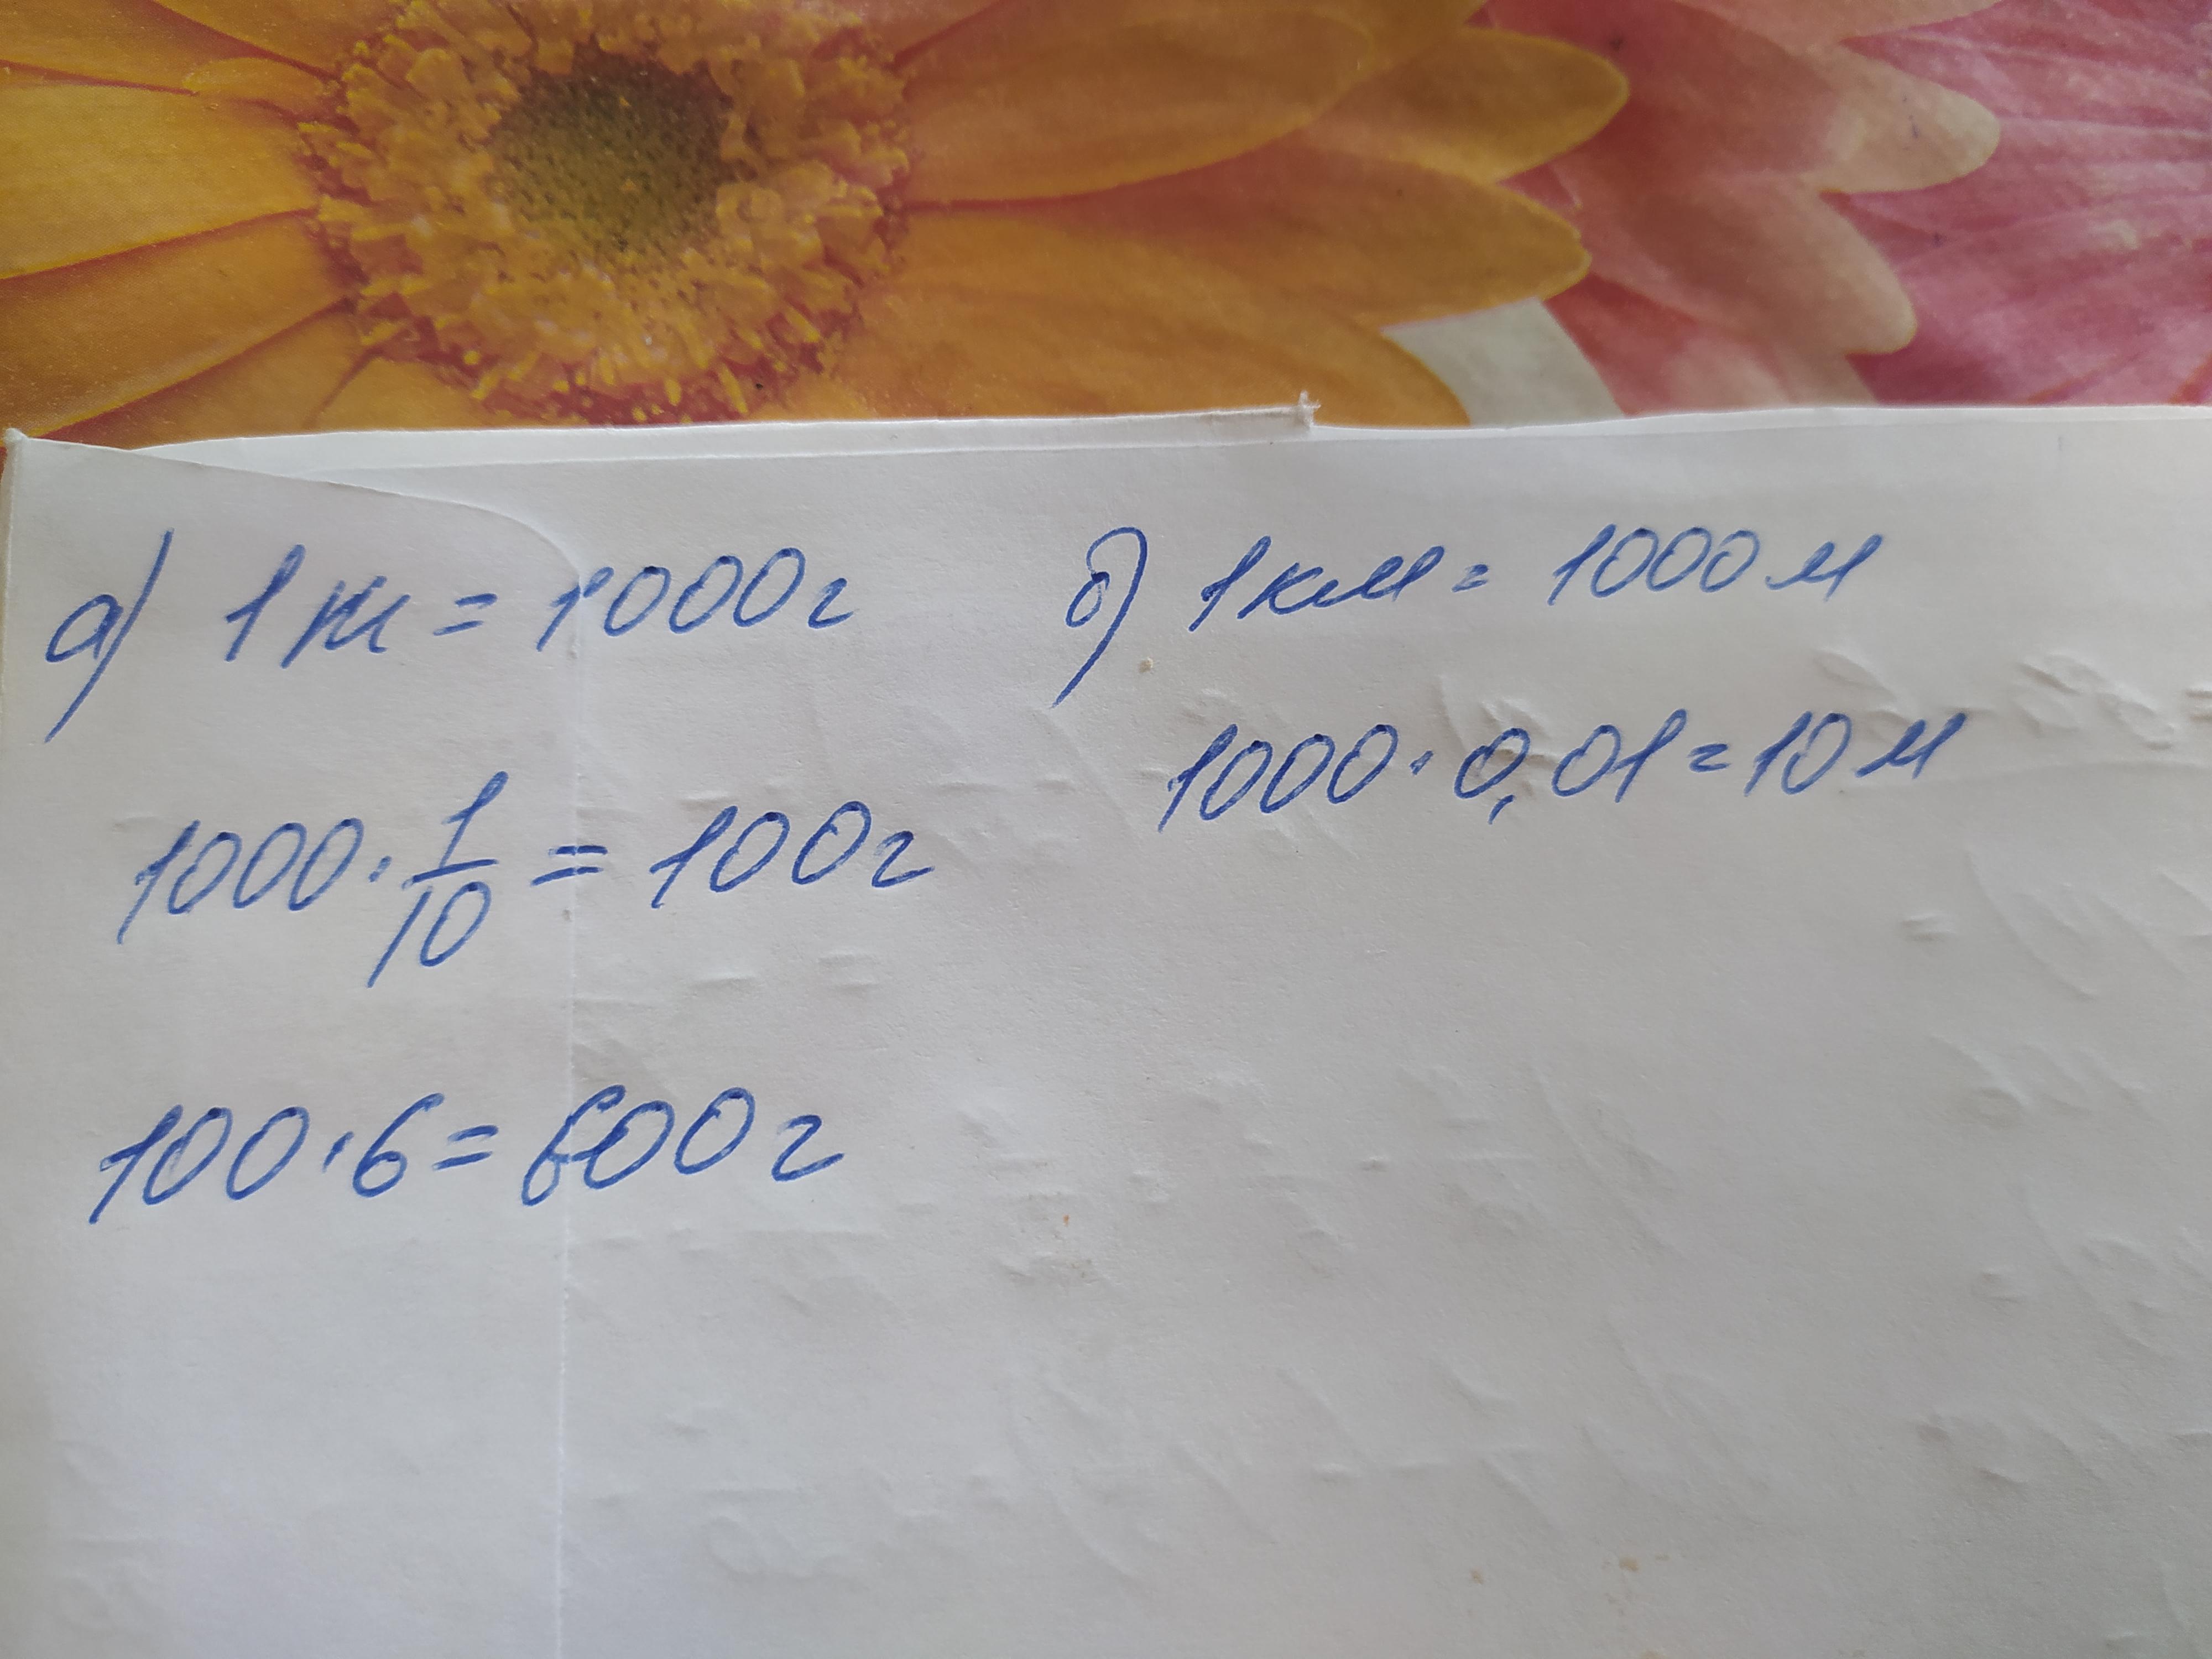 а) 1 кг = 1000 г
1000 · 1/10 = 100 г
100 · 6 = 600 г
б) 1 км = 1000 м
1000 · 0,01 = 10 м